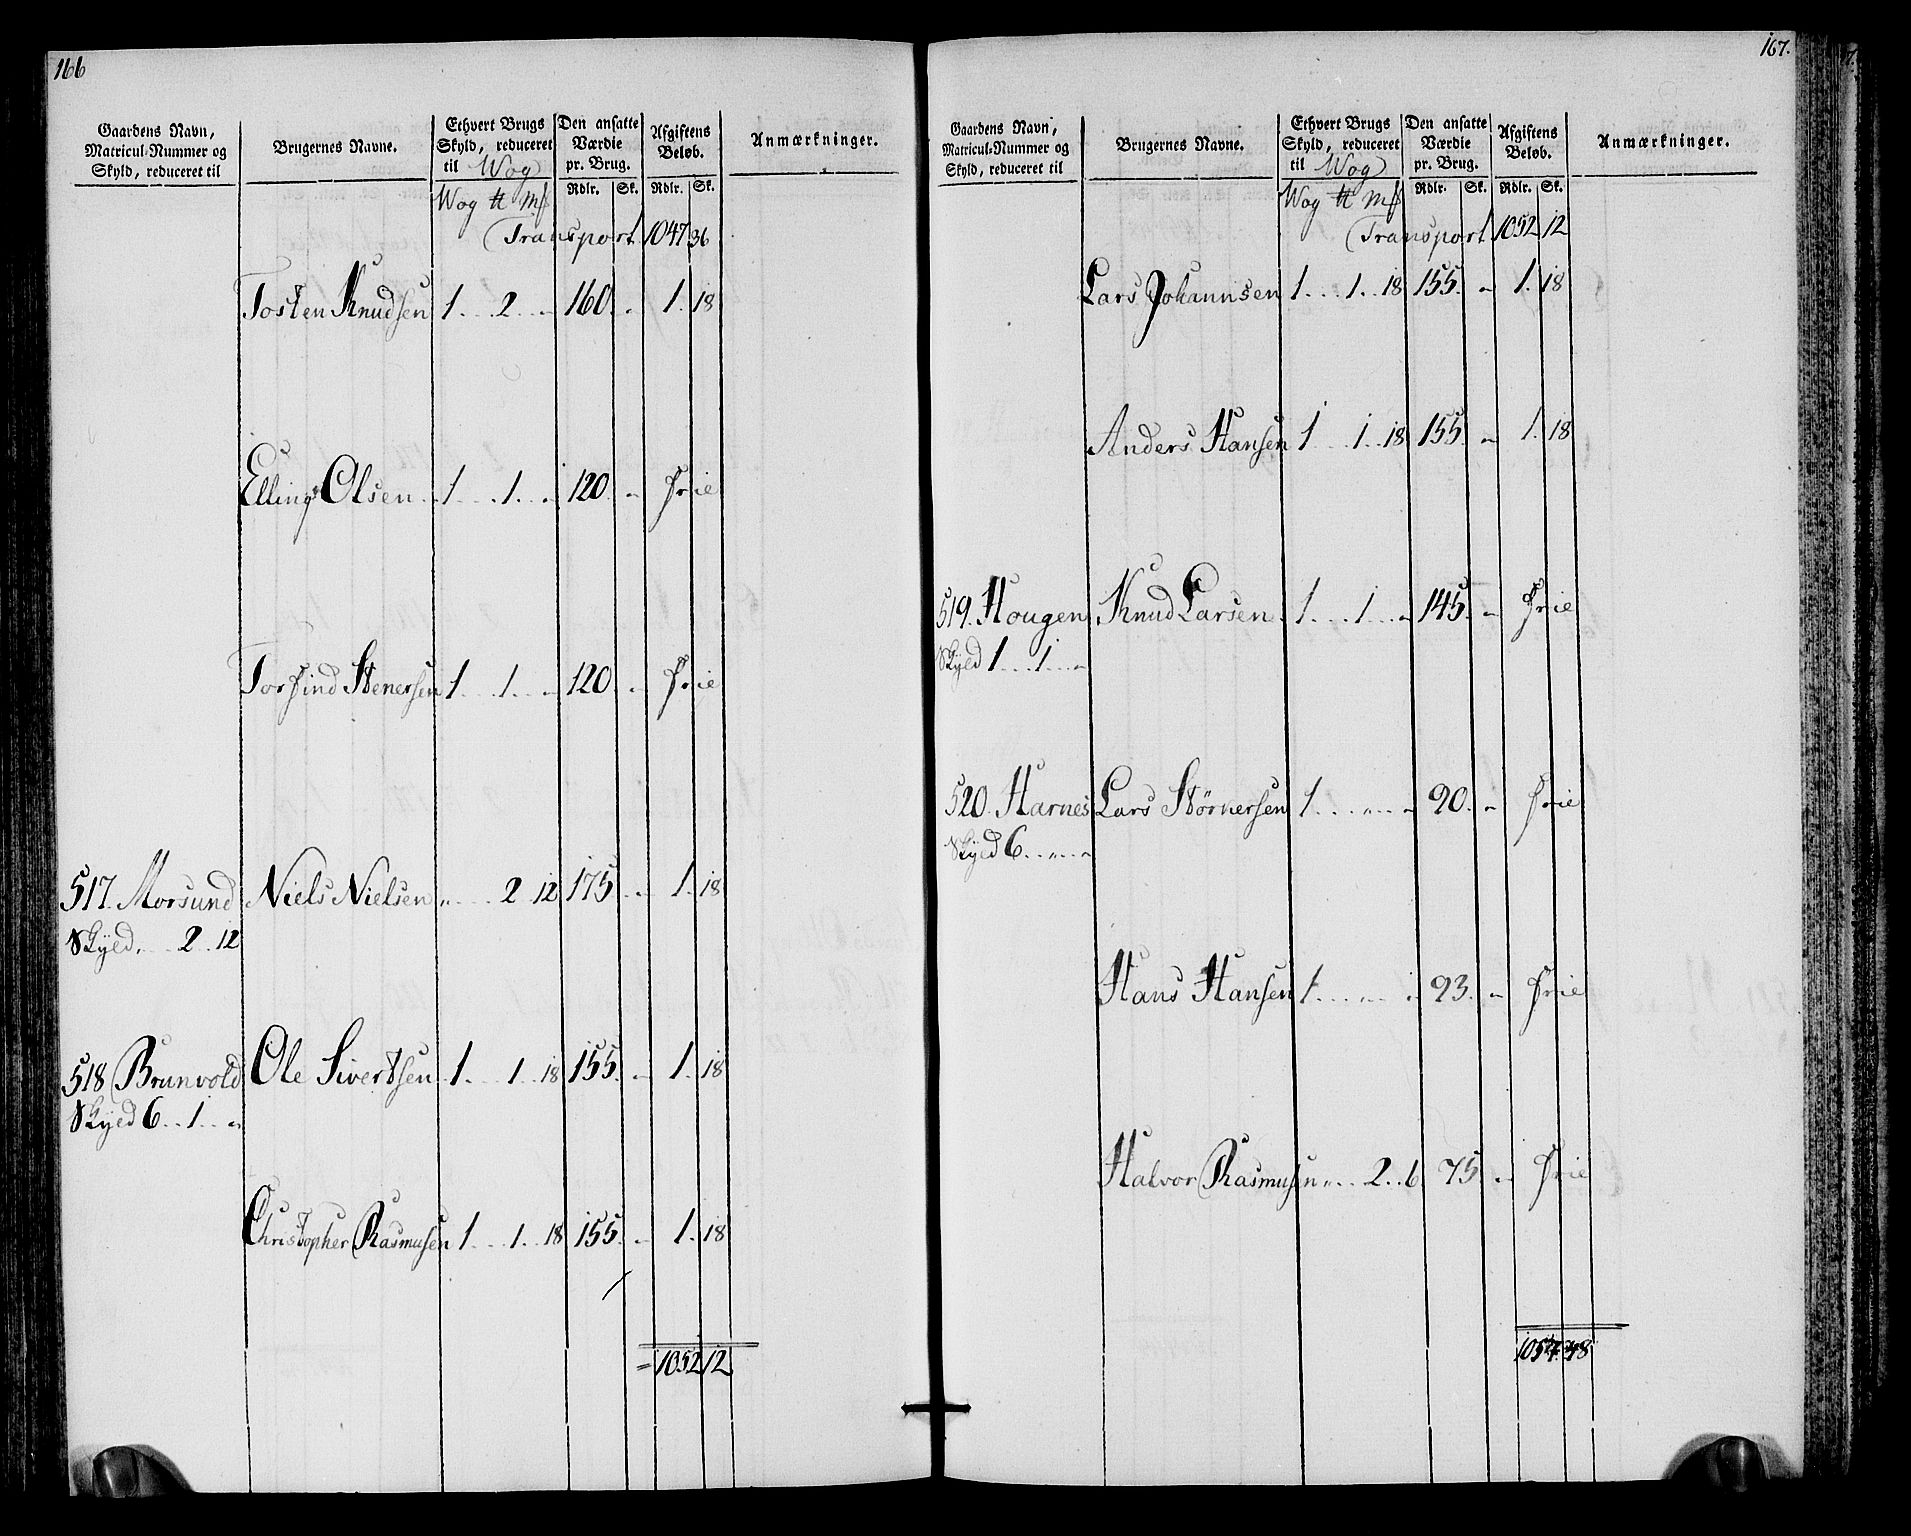 166
Gaardens Navn, Matricul-Nummer og Skyld, reduceret til | Brugernes Navne. | Ethvert Brugs Skyld, reduceret til Wog | Den ansatte Værdie pr. Brug. | Afgiftens Beløb. | Anmærkninger.
Wog ℔ Mſ | Rdlr. Sk. | Rdlr. Sk.
Transport 1047 36
Tosten Knudsen 1 . . . 2 . . „ 160 . „ 1 . 18
Elling Olsen 1 . . . 1 . . „ 120 . „ Frie
Torfind Stenersen 1 . . . 1 . . . „ 120 . „ Frie
517. Morsund Niels Nielsen „ . . . 2 12 175 . „ 1 . 18
Skyld „ . . . 2 . . 12
518 Brunvold Ole Sivertsen 1 . . . 1 . . 18 155 . „ 1 . 18
Skyld 6 . . 1 . . „
Christopher Rasmusen 1 . . . 1 . . 18 155 . „ 1 . 18
1052 12
167.
Gaardens Navn, Matricul-Nummer og Skyld, reduceret til | Brugernes Navne. | Ethvert Brugs Skyld, reduceret til Wog | Den ansatte Værdie pr. Brug. | Afgiftens Beløb. | Anmærkninger.
Wog ℔ Mſ | Rdlr. Sk. | Rdlr. Sk.
Transport 1052 12
Lars Johannsen 1 . . . 1 . . 18 155 . „ 1 . 18
Anders Hansen 1 . . . 1 . . 18 155 . „ 1 . 18
519. Hougen Knud Larsen 1 . . . 1 . . . „ 145 . „ Frie
Skyld 1 . . . 1 . . „
520. Harnes Lars Størnersen 1 . . . „ . . „ 90 . „ Frie
Skyld 6 . . „ . . „
Hans Hansen 1 . . . „ . . 93 . „ Frie
Halvor Rasmusen „ . . 2 . . 6 75 . „ Frie
1054 48